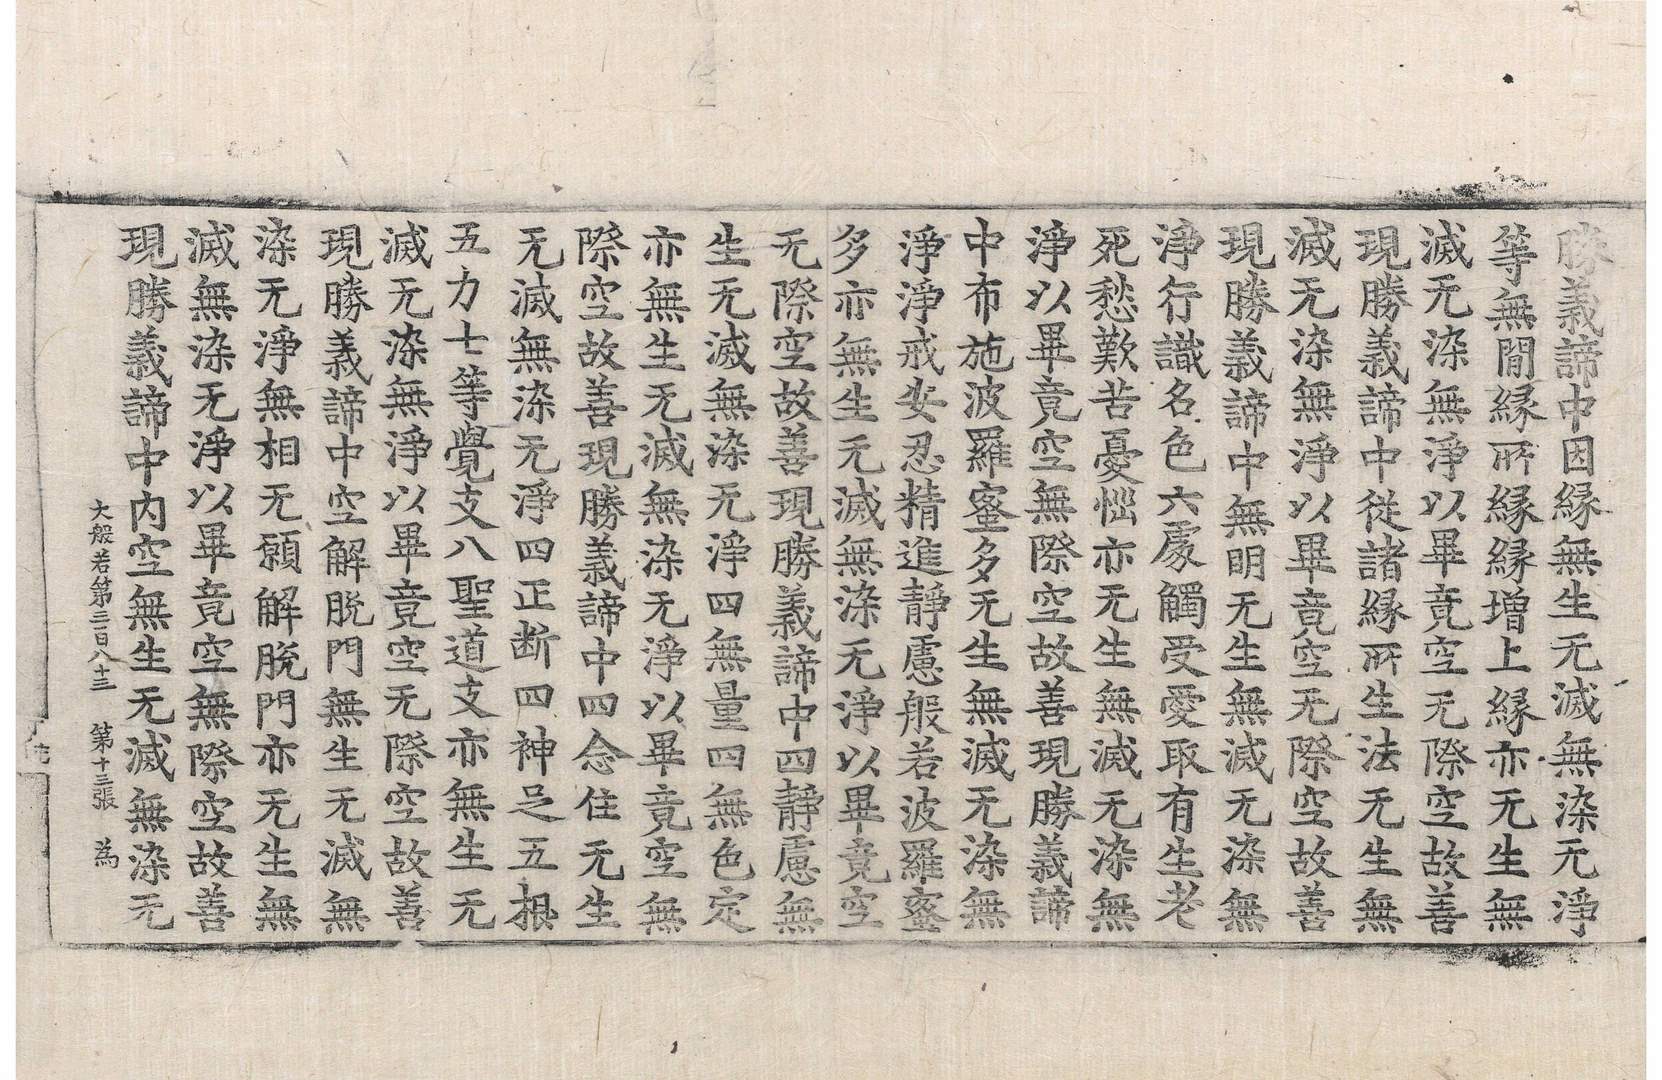 勝義諦中因縁無生无滅無染无淨
等無間縁所縁縁增上縁亦无生無
滅无染無淨以畢竟空无際空故善
現勝義諦中從諸縁所生法无生無
滅无染無淨以畢竟空无際空故善
現勝義諦中無明无生無滅无染無
淨行識名色六處觸受愛取有生老
死愁歎苦憂惱亦无生無滅无染無
淨以畢竟空無際空故善現勝義諦
中布施波羅蜜多无生無滅无染無
淨淨戒安忍精進靜慮般若波羅蜜
多亦無生无滅無染无淨以畢竟空
无際空故善現勝義諦中四靜慮無
生无滅無染无淨四無量四無色定
亦無生无滅無染无淨以畢竟空無
際空故善現勝義諦中四念住无生
无滅無染无淨四正断四神足五根
五力七等覺支八聖道支亦無生无
滅无染無淨以畢竟空无際空故善
現勝義諦中空解脱門無生无滅無
染无淨無相无願解脱門亦无生無
滅無染无淨以畢竟空無際空故善
現勝義諦中内空無生无滅無染无
大般若第三百八十三 第十三張 為